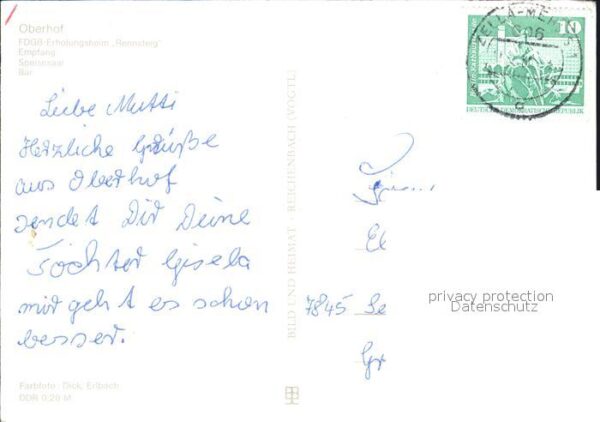 Oberhof
FDGB-Erholungsheim „Rennsteig"
Empfang
Speisesaal
Bar
Liebe Mutti
Herzliche Grüße
aus Oberhof
sendet Dir Deine
Tochter Gisela
mir geht es schon
besser.
Farbfoto: Dick, Erlbach
DDR 0,20 M
BILD UND HEIMAT REICHENBACH (VOGTL)
10
ZELLA-MEHLIS 1
606
DEUTSCHE DEMOKRATISCHE REPUBLIK
El
7845 Se
Gr
privacy protection
Datenschutz